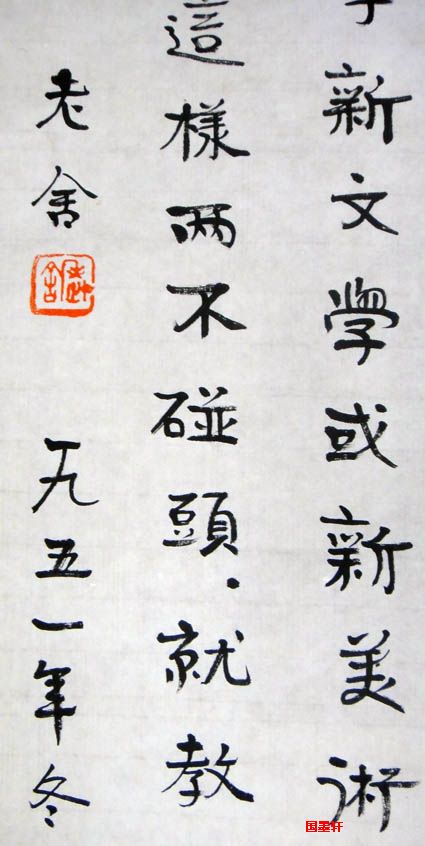 新文學或新美術
這樣兩不碰頭．就教
老舍
老舍
一九五一年冬
国墨轩